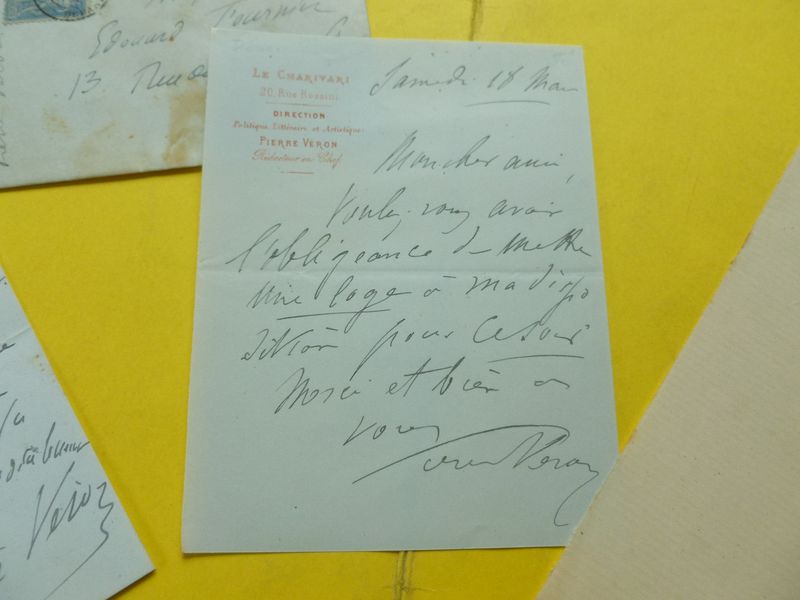 Edouard Fournier
13 Rue
LE CHARIVARI
20, Rue Rossini
DIRECTION
Politique, Littéraire et Artistique
PIERRE VÉRON
Rédacteur en Chef
Samedi 18 Mars
Mon cher ami,
Voulez-vous avoir
l'obligeance de mettre
une loge à ma dispo
sition pour ce soir
Merci et bien à
vous
Pierre Véron
Véron